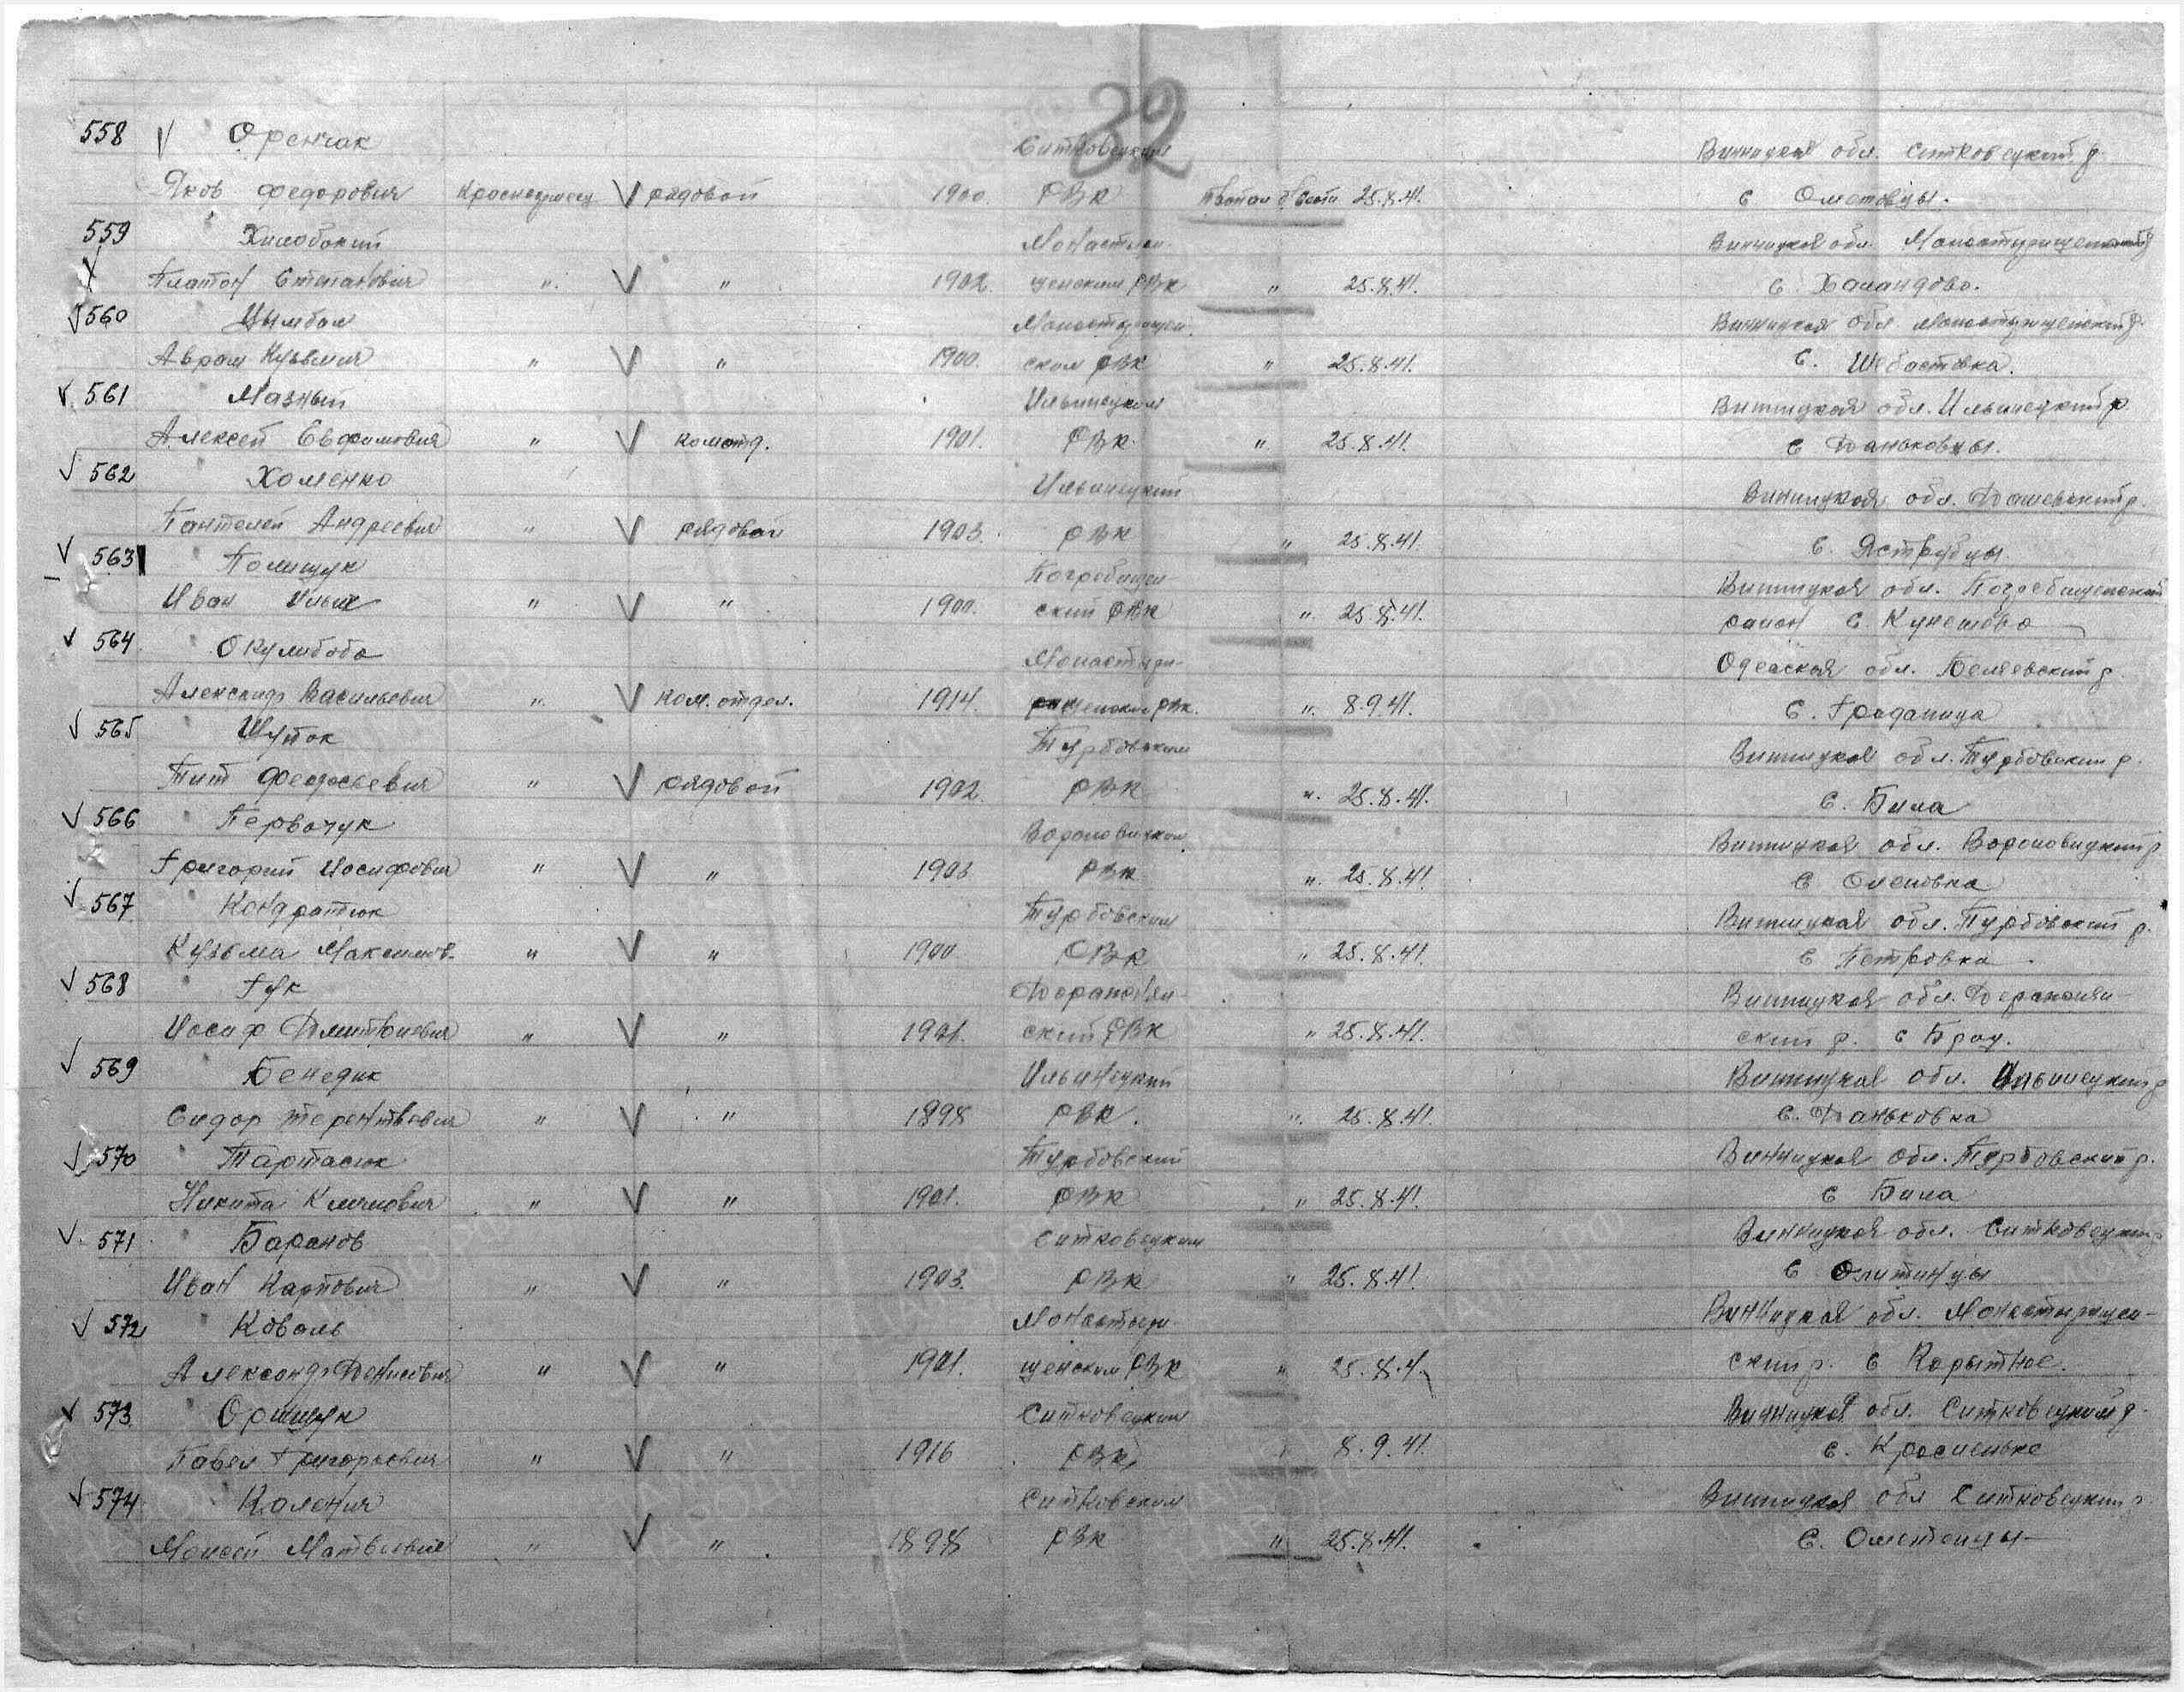 32
558 Оренчак Ситковецким Винницкая обл. Ситковецкий р.
Яков Федорович Красноармеец V рядовой 1900. РВК 25.8.41. с Ометовцы.
559 Монастыри- Винницкая обл.
Платон Степанович " V " 1902. щенским РВК " 25.8.41. с.
560 Цымбал Монастырищен. Винницкая обл Монастырищенский р.
Аврам Кузьмич " V " 1900. ским РВК " 25.8.41. С. Шабастовка.
V 561 Мазный Ильинецким Винницкая обл. Ильинецкий р.
Алексей Евфимович " V ком отд. 1901. РВК " 25.8.41. с Даньковцы.
V 562 Хоменко Ильинецкий Винницкая обл. Дашевский р.
Пантелей Андреевич " V рядовой 1903. РВК " 25.8.41. с. Яструбцы.
V 563 Полищук Погребищен- Винницкая обл. Погребищенский
Иван Ильич " V " 1900. ский РВК " 25.8.41. район с.
V 564 Окулибаба Монастыри- Одесская обл. Беляевский р.
Александр Васильевич " V ком. отдел. 1914. РВК. " 8.9.41. С. Граданица
V 565 Шупок Турбовским Винницкая обл. Турбовский р.
Тит Федосьевич " V рядовой 1902. РВК " 25.8.41. с. Била
V 566 Первачук Вороновицким Винницкая обл. Вороновицкий р
Григорий Иосифович " V " 1903 РВК " 25.8.41. с Оленовка
V 567 Кондратюк Турбовским Винницкая обл. Турбовский р.
Кузьма Максимов. " V " 1900 РВК " 25.8.41. с Петровка.
V 568 Гук Винницкая обл.
Иосиф Дмитриевич " V " 1901. ский РВК " 25.8.41. ский р. с
V 569 Бенедик Ильинецкий Винницкая обл. Ильинецкий р
Сидор Терентьевич " V " 1898 РВК. " 25.8.41. с. Даньковка
V 570 Тартасюк Турбовский Винницкая обл. Турбовский р.
Никита Климович " V " 1901. РВК " 25.8.41. с Била
V. 571 Баранов Ситковецким Винницкая обл. Ситковецкий р
Иван Карпович " V " 1903. РВК " 25.8.41. с
V 572 Коваль Монастыри- Винницкая обл. Монастырищен-
Александр Денисович " V " 1901. щенским РВК " 25.8.4 ский р. с Корытное.
V 573 Орищук Ситковецким Винницкая обл. Ситковецкий р.
Павел Григорьевич " V " 1916 РВК " 8.9.41. с. Красненько
V 574 Коленич Ситковским Винницкая обл Ситковецкий р.
Моисей Матвеевич " V " 1898 РВК " 25.8.41. с. Ометенцы